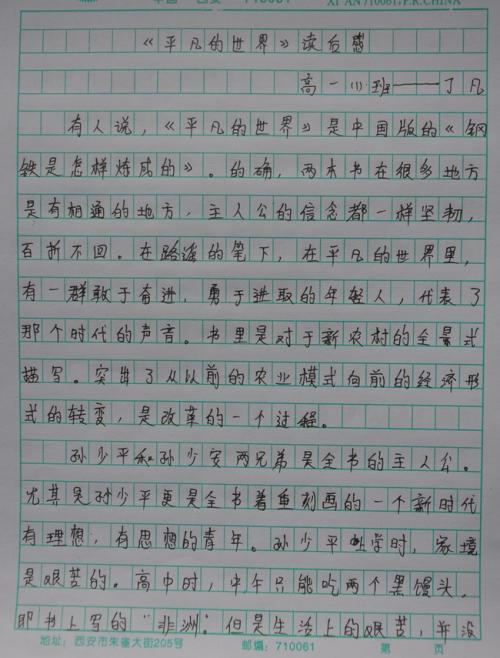 710061 XI'AN710061,P.R.CHINA
《平凡的世界》读后感
高一(1)班——丁凡
有人说，《平凡的世界》是中国版的《钢
铁是怎样炼成的》。的确，两本书在很多地方
是有相通的地方，主人公的信念都一样坚韧，
百折不回。在路遥的笔下，在平凡的世界里，
有一群敢于奋进，勇于进取的年轻人，代表了
那个时代的声音。书里是对于新农村的全景式
描写。突出了从以前的农业模式向前的经济形
式的转变，是改革的一个过程。
孙少平和孙少安两兄弟是全书的主人公。
尤其是孙少平更是全书着重刻画的一个新时代
有理想，有思想的青年。孙少平 学时，家境
是艰苦的。高中时，中午只能吃两个黑馒头，
即书上写的“非洲”。但是生活上的艰苦，并没
地址：西安市朱雀大街205号 邮编：710061 第 页